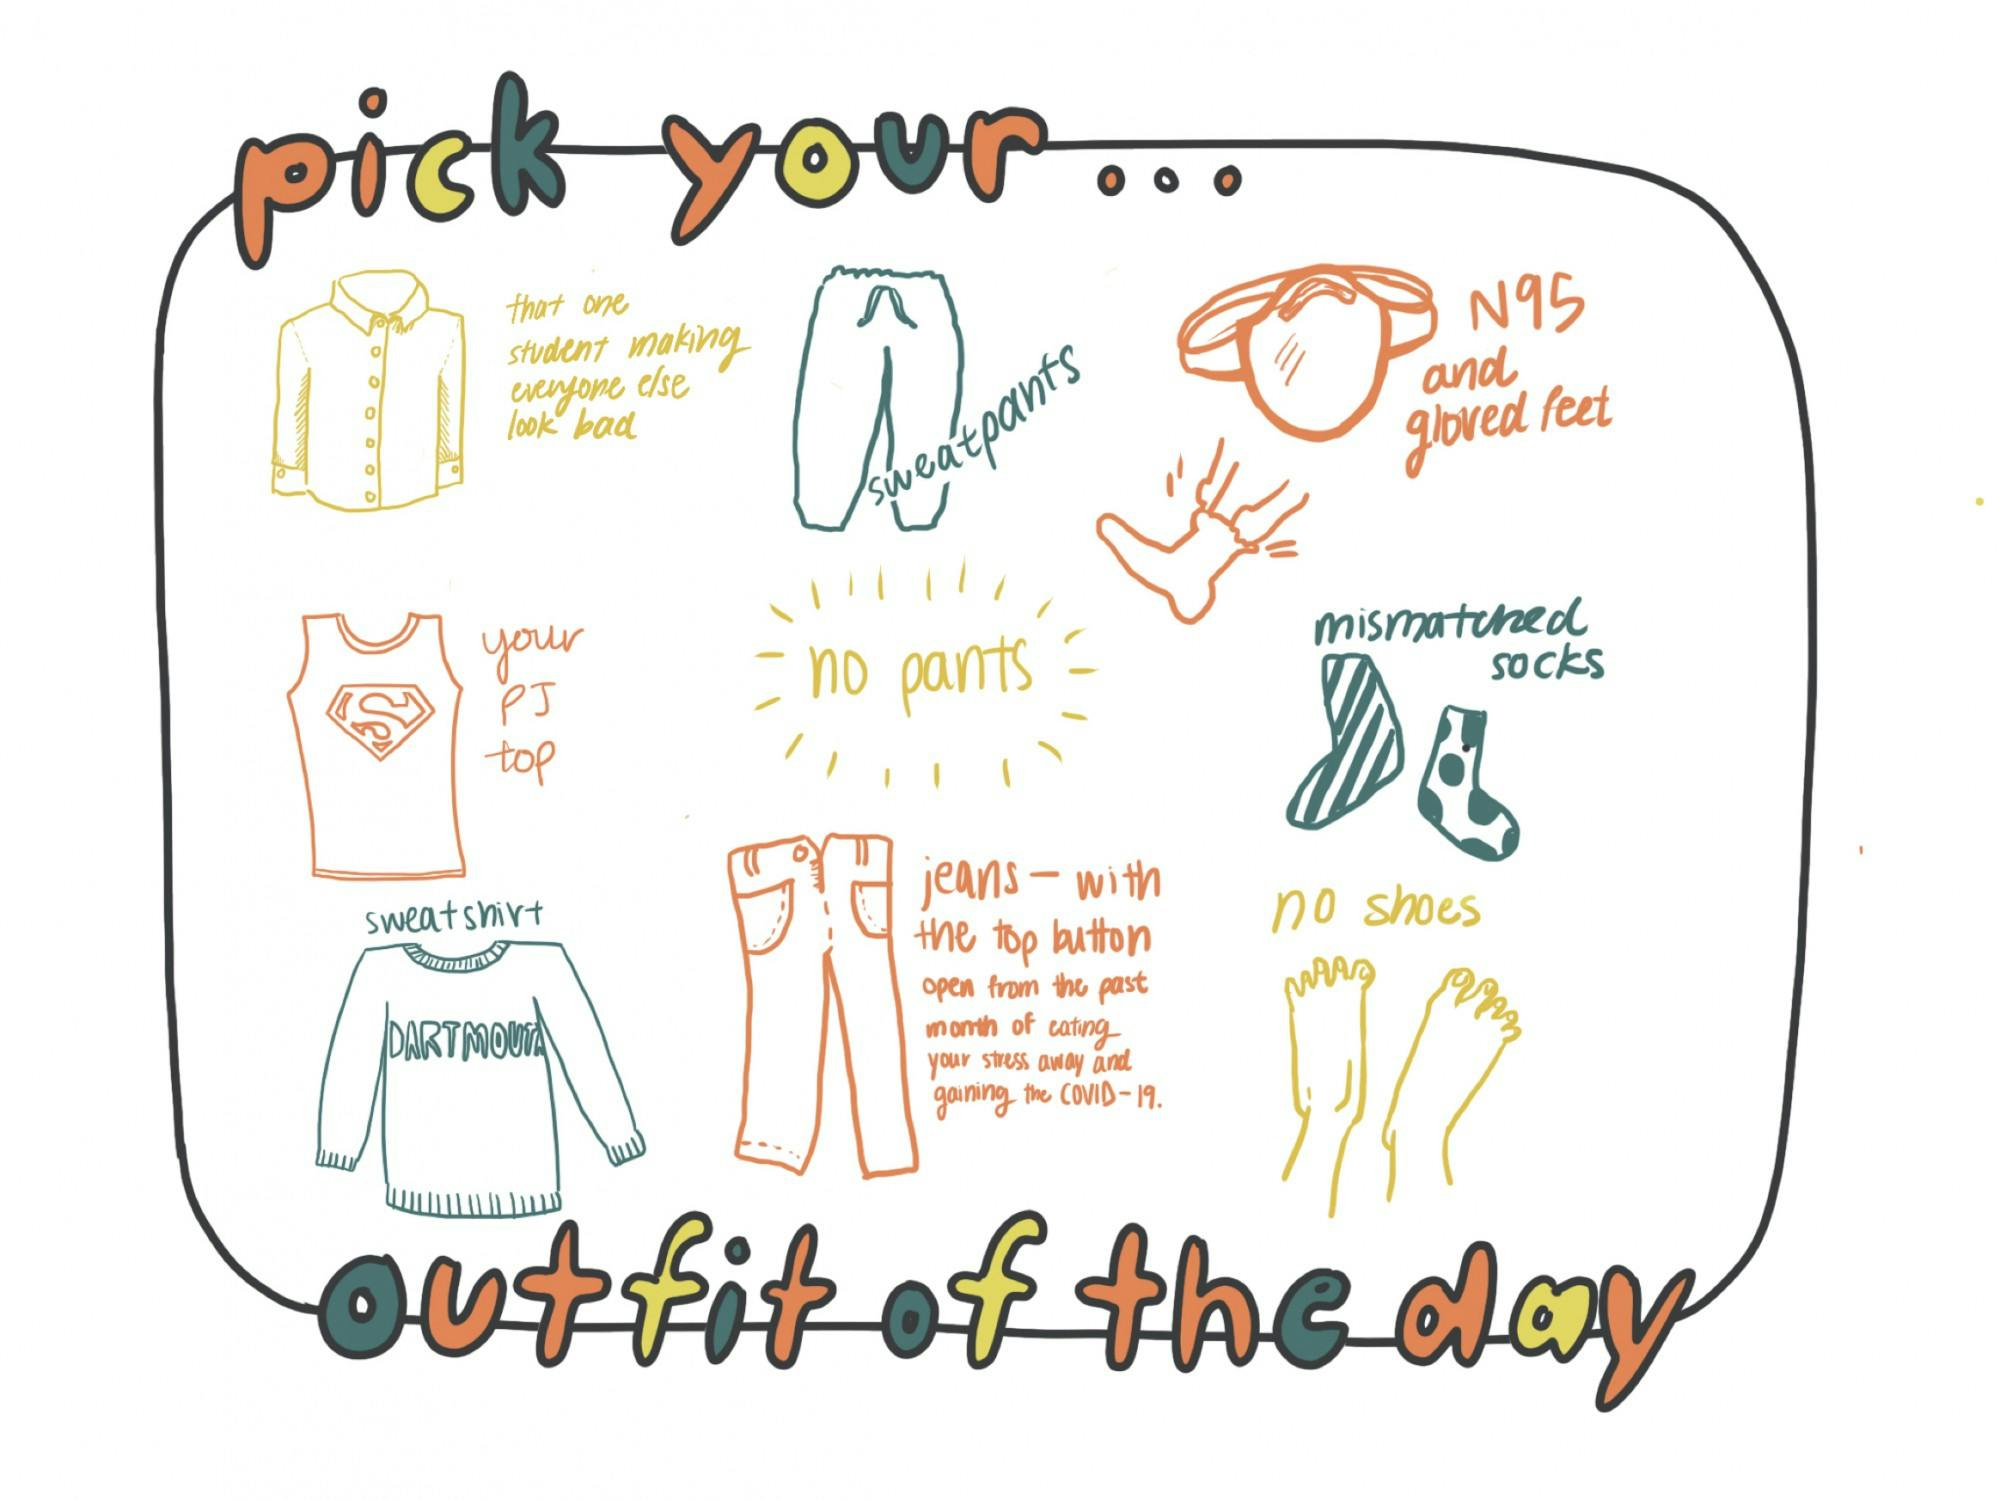 pick your...
that one
student making
everyone else
look bad
sweatpants
N95
and
gloved feet
S
your
PJ
top
no pants
mismatched
socks
sweatshirt
DARTMOUTH
jeans - with
the top button
open from the past
month of eating
your stress away and
gaining the COVID-19.
no shoes
outfit of the day